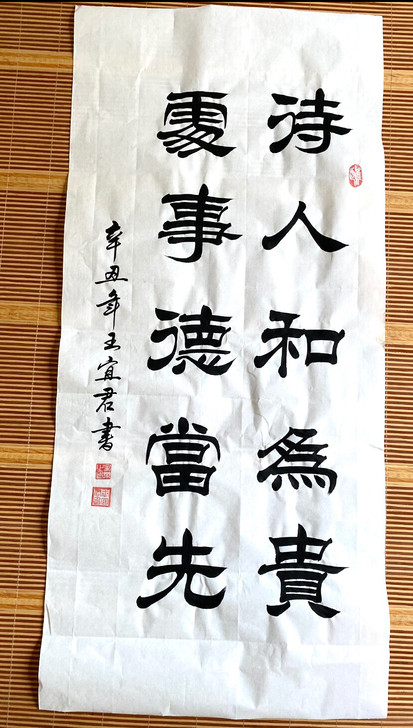 待人和為貴
處事德當先
辛丑年王宜君書